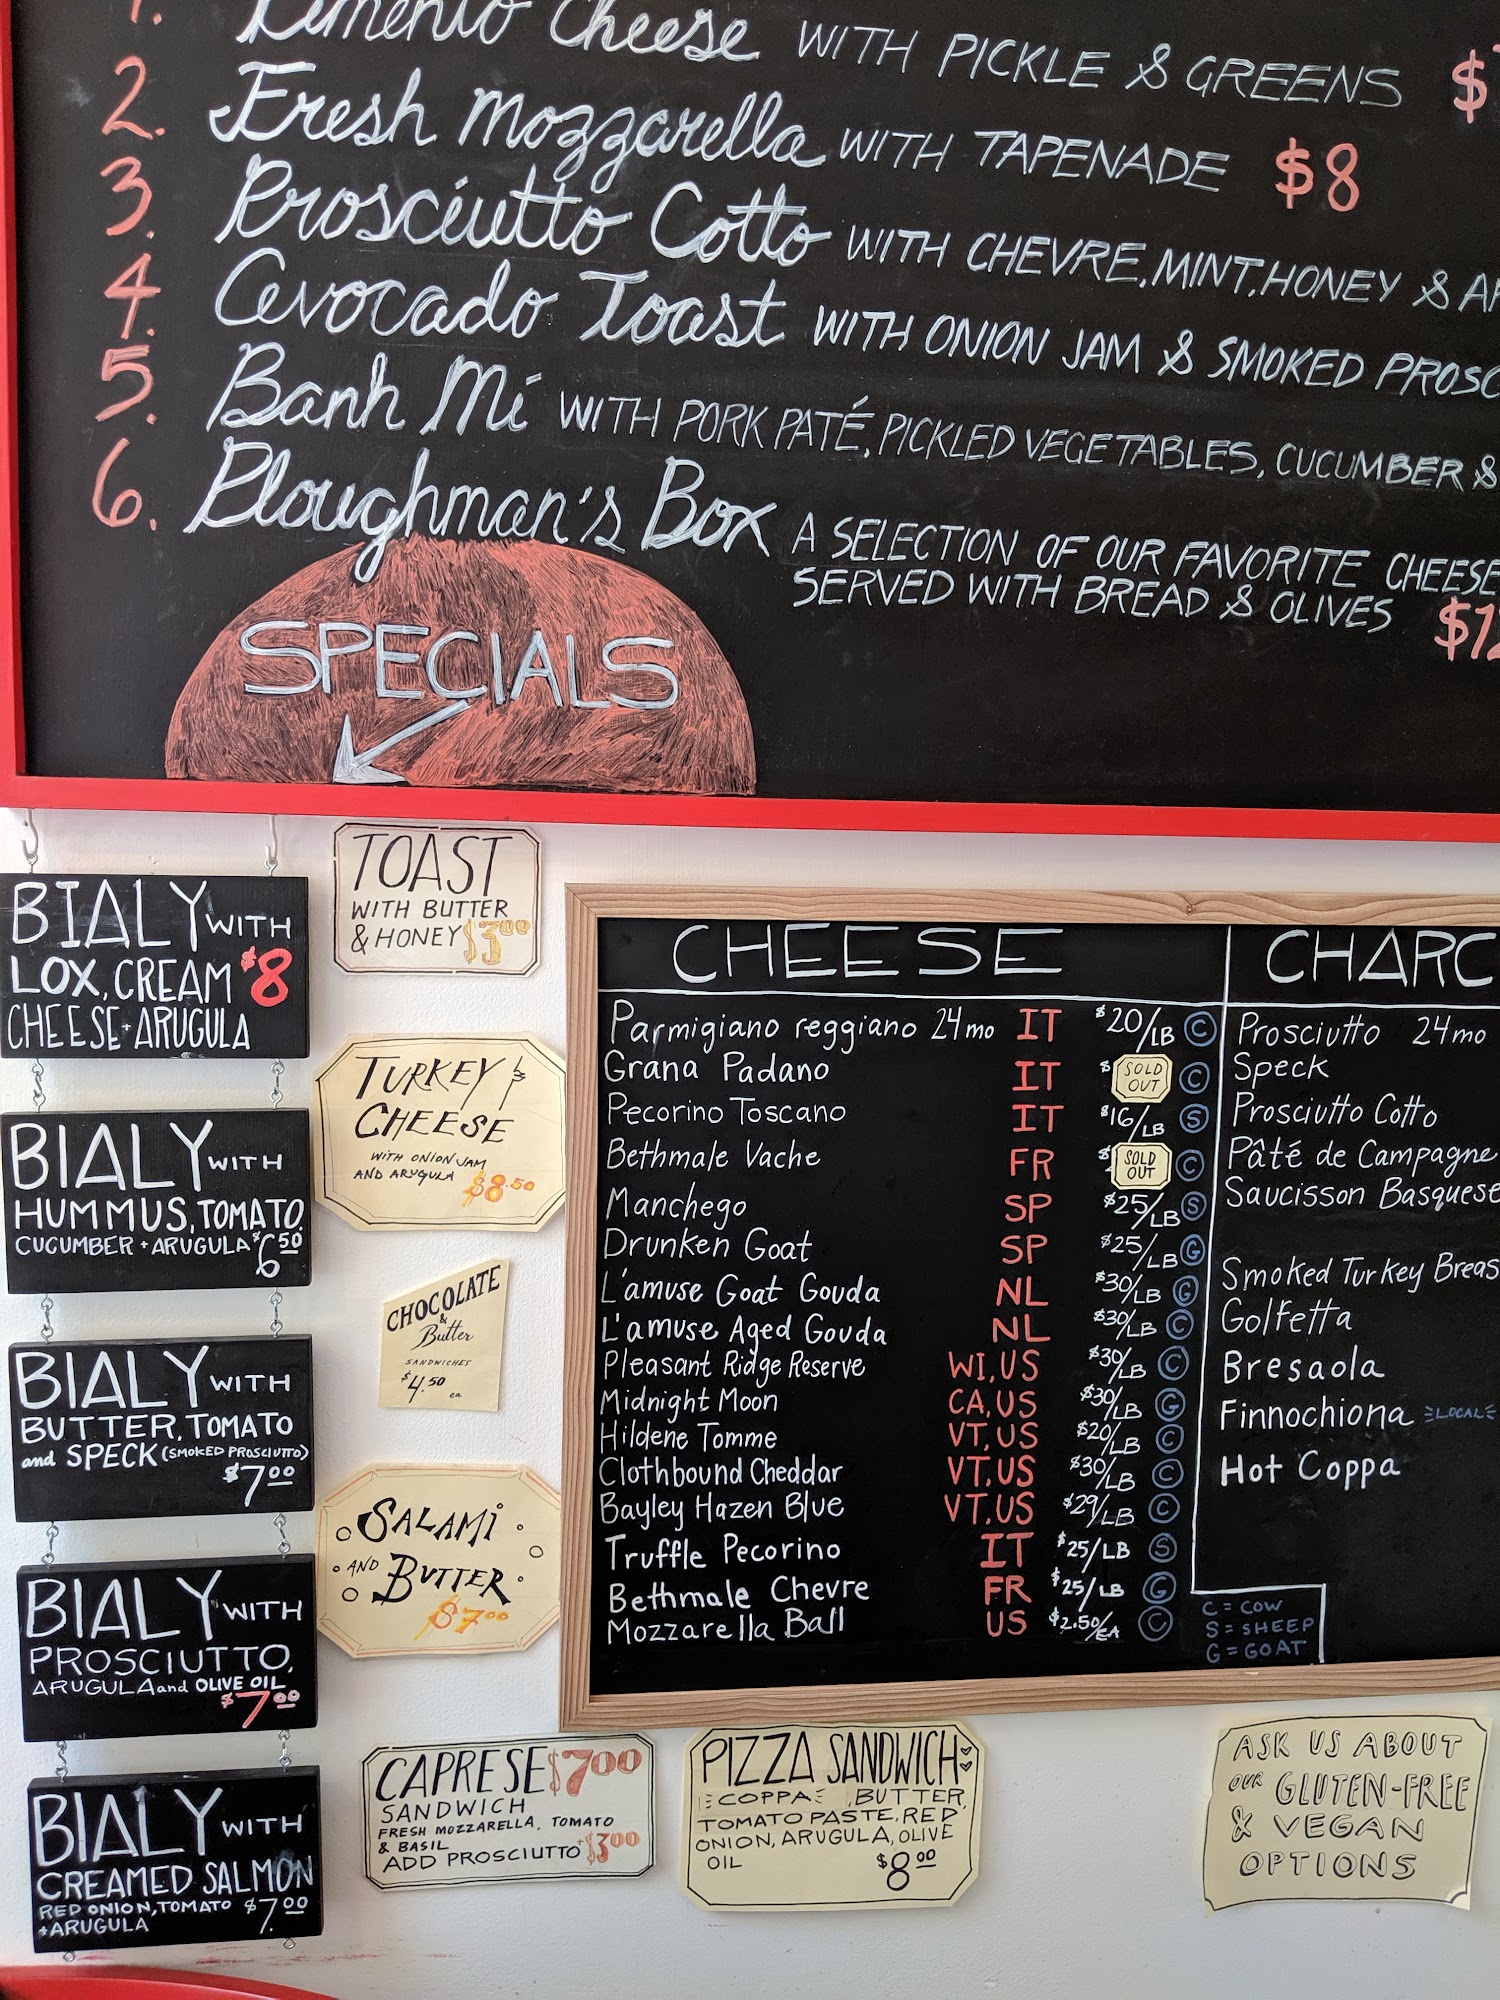 1. Pimento Cheese WITH PICKLE & GREENS $
2. Fresh Mozzarella WITH TAPENADE $8
3. Prosciutto Cotto WITH CHEVRE, MINT, HONEY &
4. Avocado Toast WITH ONION JAM & SMOKED
5. Banh Mi WITH PORK PATÉ, PICKLED VEGETABLES, CUCUMBER &
6. Ploughman's Box A SELECTION OF OUR FAVORITE CHEESE
SERVED WITH BREAD & OLIVES $12
SPECIALS
BIALY WITH
LOX, CREAM $8
CHEESE + ARUGULA
BIALY WITH
HUMMUS, TOMATO,
CUCUMBER + ARUGULA $6.50
BIALY WITH
BUTTER, TOMATO
and SPECK (SMOKED PROSCIUTTO)
$7.00
BIALY WITH
PROSCIUTTO,
ARUGULA and OLIVE OIL
$7.00
BIALY WITH
CREAMED SALMON
RED ONION, TOMATO $7.00
+ARUGULA
TOAST
WITH BUTTER
& HONEY $3.00
TURKEY &
CHEESE
WITH ONION JAM
AND ARUGULA $8.50
CHOCOLATE
&
Butter
SANDWICHES
$4.50
ea
SALAMI
AND BUTTER
$7.00
CAPRESE $7.00
SANDWICH
FRESH MOZZARELLA, TOMATO
& BASIL
ADD PROSCIUTTO +$3.00
PIZZA SANDWICH
COPPA, BUTTER,
TOMATO PASTE, RED
ONION, ARUGULA, OLIVE
OIL $8.00
CHEESE
Parmigiano reggiano 24mo IT $20/LB C
Grana Padano IT $ SOLD OUT C
Pecorino Toscano IT $16/LB S
Bethmale Vache FR $ SOLD OUT C
Manchego SP $25/LB S
Drunken Goat SP $25/LB G
L'amuse Goat Gouda NL $30/LB G
L'amuse Aged Gouda NL $30/LB C
Pleasant Ridge Reserve WI, US $30/LB C
Midnight Moon CA, US $30/LB G
Hildene Tomme VT, US $20/LB C
Clothbound Cheddar VT, US $30/LB C
Bayley Hazen Blue VT, US $29/LB C
Truffle Pecorino IT $25/LB S
Bethmale Chevre FR $25/LB G
Mozzarella Ball US $2.50/EA C
CHARC
Prosciutto 24mo
Speck
Prosciutto Cotto
Pâté de Campagne
Saucisson Basquese
Smoked Turkey Breas
Golfetta
Bresaola
Finnochiona LOCAL
Hot Coppa
C = COW
S = SHEEP
G = GOAT
ASK US ABOUT
OUR GLUTEN-FREE
& VEGAN
OPTIONS